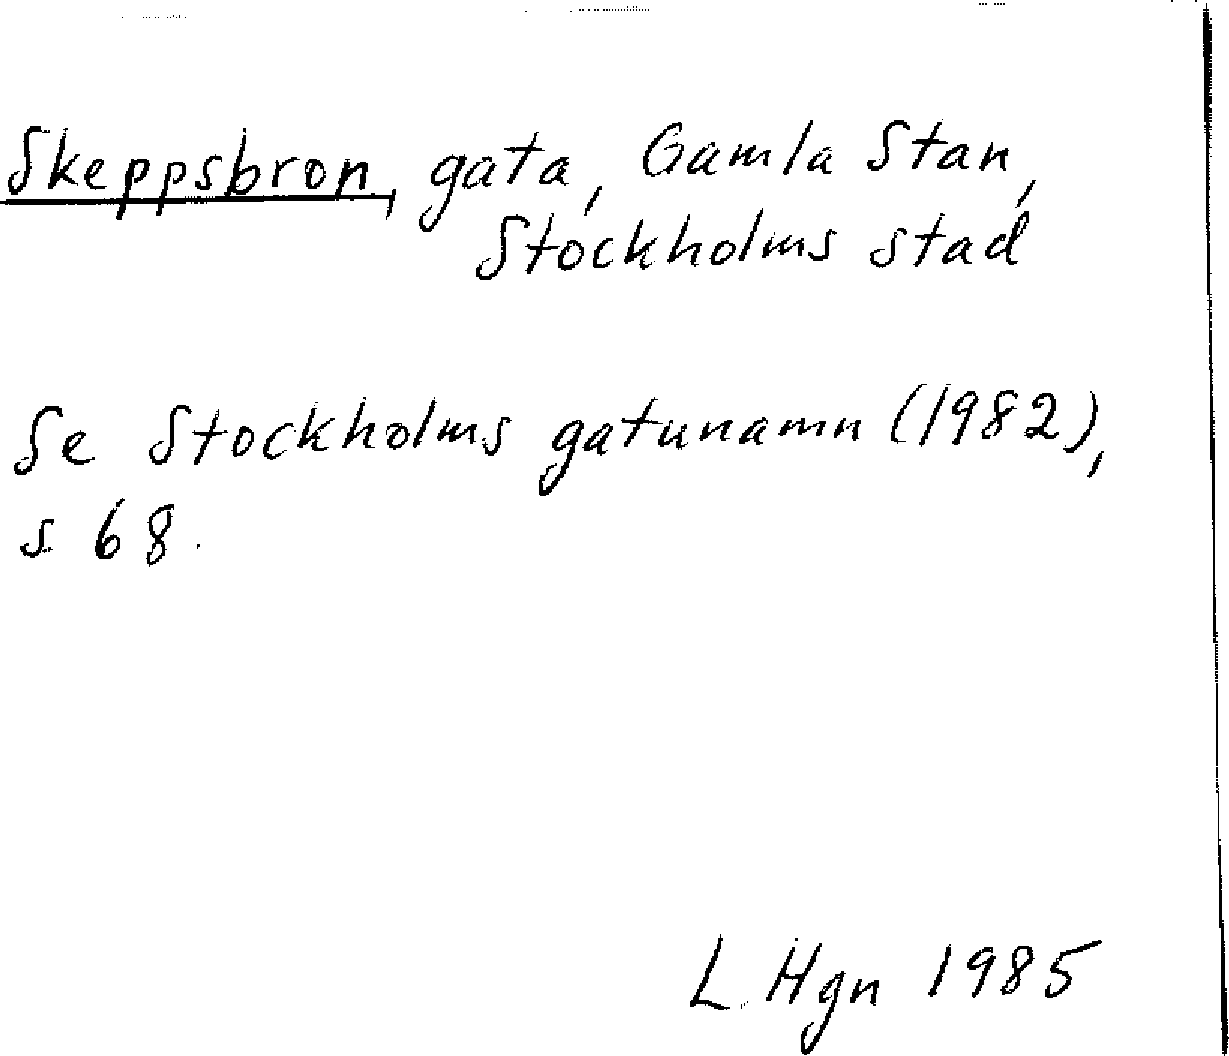 Skeppsbron, gata, Gamla Stan,
Stockholms stad
Se Stockholms gatunamn (1982),
s 68.
L Hgn 1985